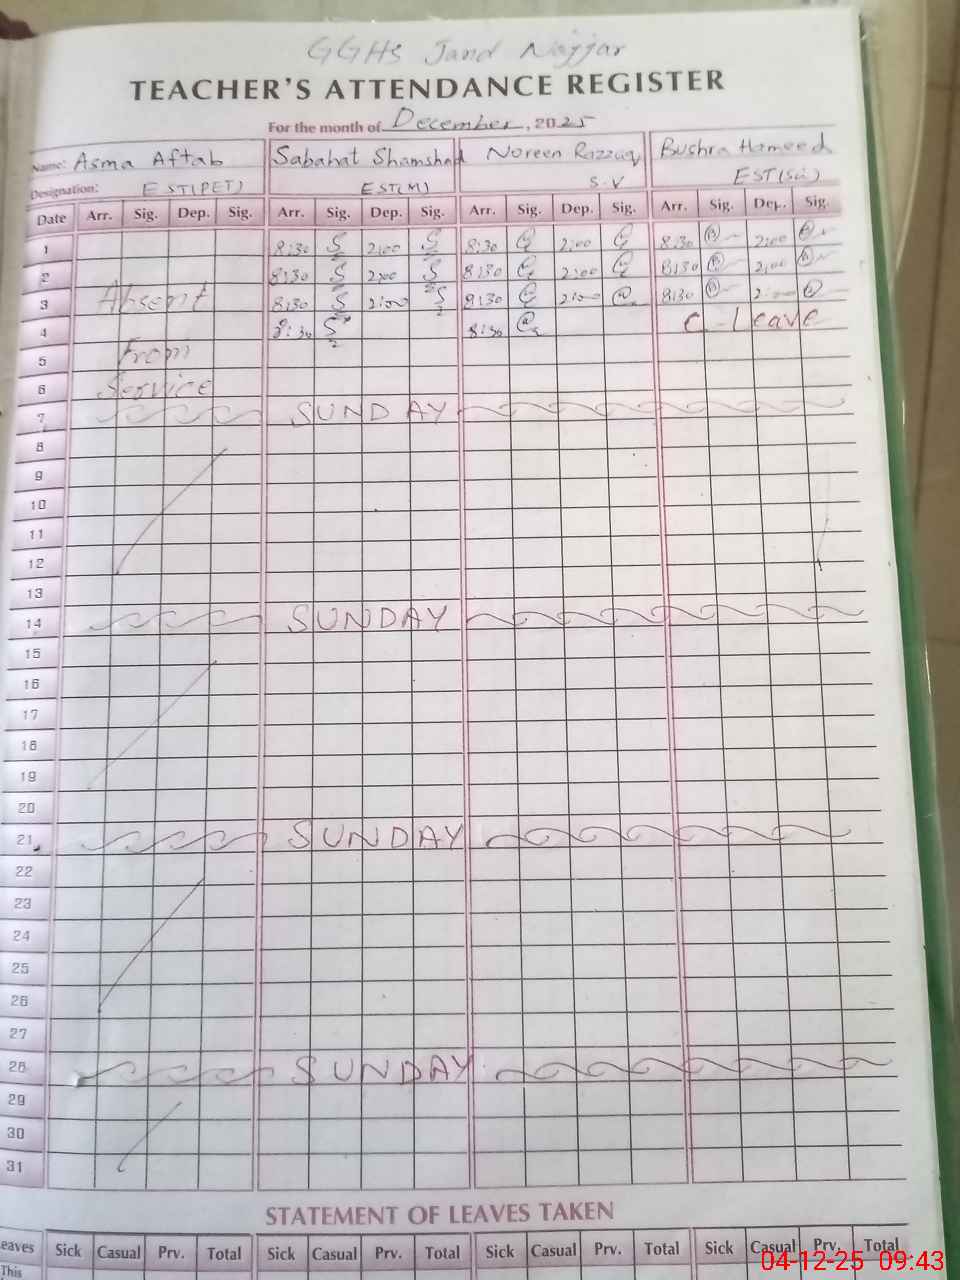 GGHS Jand Najjar
TEACHER'S ATTENDANCE REGISTER
For the month of December, 2025
Name: Asma Aftab Sabahat Shamshad Noreen Razzaq Bushra Hameed
Designation: EST(PET) EST(M) S.V EST(Sci)
Date Arr. Sig. Dep. Sig. Arr. Sig. Dep. Sig. Arr. Sig. Dep. Sig. Arr. Sig. Dep. Sig.
1 8:30 2:00 8:30 2:00 8:30 2:00
2 8:30 2:00 8:30 2:00 8:30 2:00
3 Absent 8:30 2:00 8:30 2:00 8:30 2:00
4 8:30 8:30 C-Leave
5 From
6 Service
7 SUNDAY
8
9
10
11
12
13
14 SUNDAY
15
16
17
18
19
20
21 SUNDAY
22
23
24
25
26
27
28 SUNDAY
29
30
31
STATEMENT OF LEAVES TAKEN
eaves Sick Casual Prv. Total Sick Casual Prv. Total Sick Casual Prv. Total Sick Casual Prv. Total
This
04-12-25 09:43